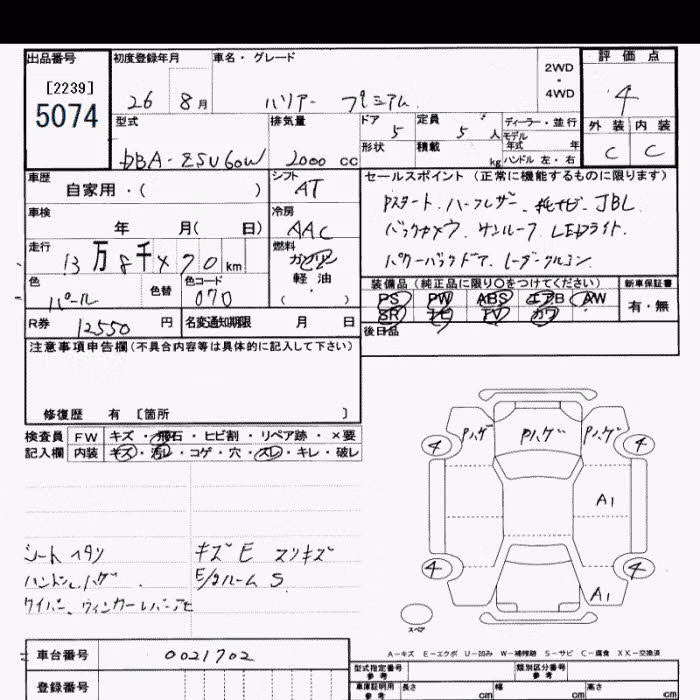 出品番号 初度登録年月 車名・グレード 2WD・4WD 評価点
[2239]
5074
26 8月 ハリアー プレミアム 4
型式 排気量 ドア 定員 ディーラー・並行 外装 内装
5 5人 モデル年式 年
形状 積載 kg ハンドル 左・右 C C
DBA-ZSU60W 2000cc
車歴 シフト セールスポイント(正常に機能するものに限ります)
自家用・( ) AT
Pスタート、ハーフレザー、純ナビ、JBL
車検 冷房
年 月( 日) AAC バックカメラ サンルーフ LEDライト
走行 燃料
13万8千×70km ガソリン パワーバックドア
軽油
色 色替 色コード ( ) 装備品(純正品に限り○をつけてください) 新車保証書
パール 070 PS PW ABS エアB AW 有・無
R券 12550円 名変通知期限 月 日 SR ナビ TV カワ
後日品
注意事項申告欄(不具合内容等は具体的に記入して下さい)
修復歴 有 [箇所 ]
検査員 FW キズ・飛石・ヒビ割・リペア跡・×要
記入欄 内装 キズ・汚レ・コゲ・穴・スレ・キレ・破レ
Pハゲ Pハゲ Pハゲ
4 4
A1
シートヘタリ キズE スリキズ
ハンドルハゲ E/gルームS
4 4
A1
スペア
A-キズ E-エクボ U-凹み W-補修跡 S-サビ C-腐食 XX-交換済
車台番号 0021702
型式指定番号 参考 類別区分番号 参考
登録番号 車庫証明用 参考 長さ cm 幅 cm 高さ cm